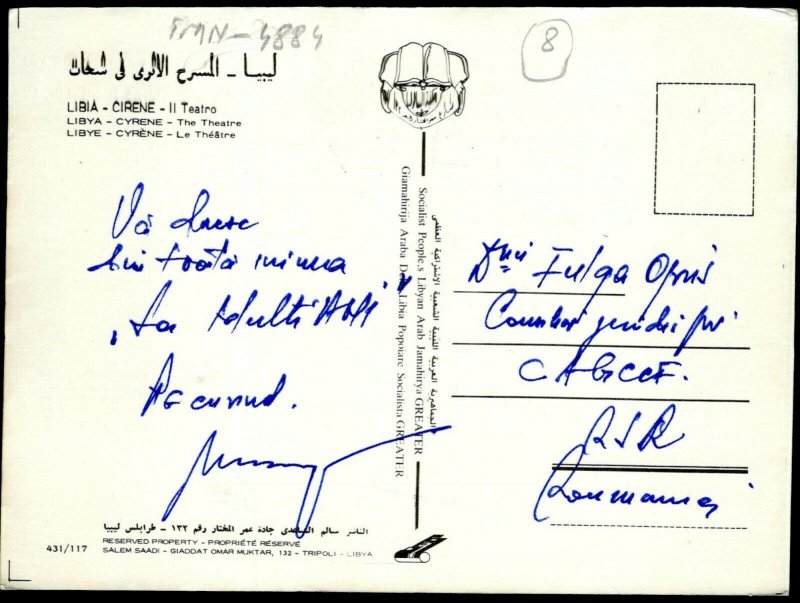 FMN-4884
8
ليبيا - المسرح الأثرى فى شحات
LIBIA - CIRENE - Il Teatro
LIBYA - CYRENE - The Theatre
LIBYE - CYRÈNE - Le Théâtre
Vă
din toată inima
"La Mulți Ani"
الجماهيرية العربية الليبية الشعبية الإشتراكية العظمى
Socialist People,s Libyan Arab Jamahirya GREATER
Giamahirija Araba Della Libia Popolare Socialista GREATER
Dnei Fulga Opriș
Consilier juridic
CAGCCF.
RSR
Roumania
الناشر سالم الساعدى جادة عمر المختار رقم ١٣٢ - طرابلس ليبيا
431/117
RESERVED PROPERTY - PROPRIÉTÉ RÉSERVÉ
SALEM SAADI - GIADDAT OMAR MUKTAR, 132 - TRIPOLI - LIBYA